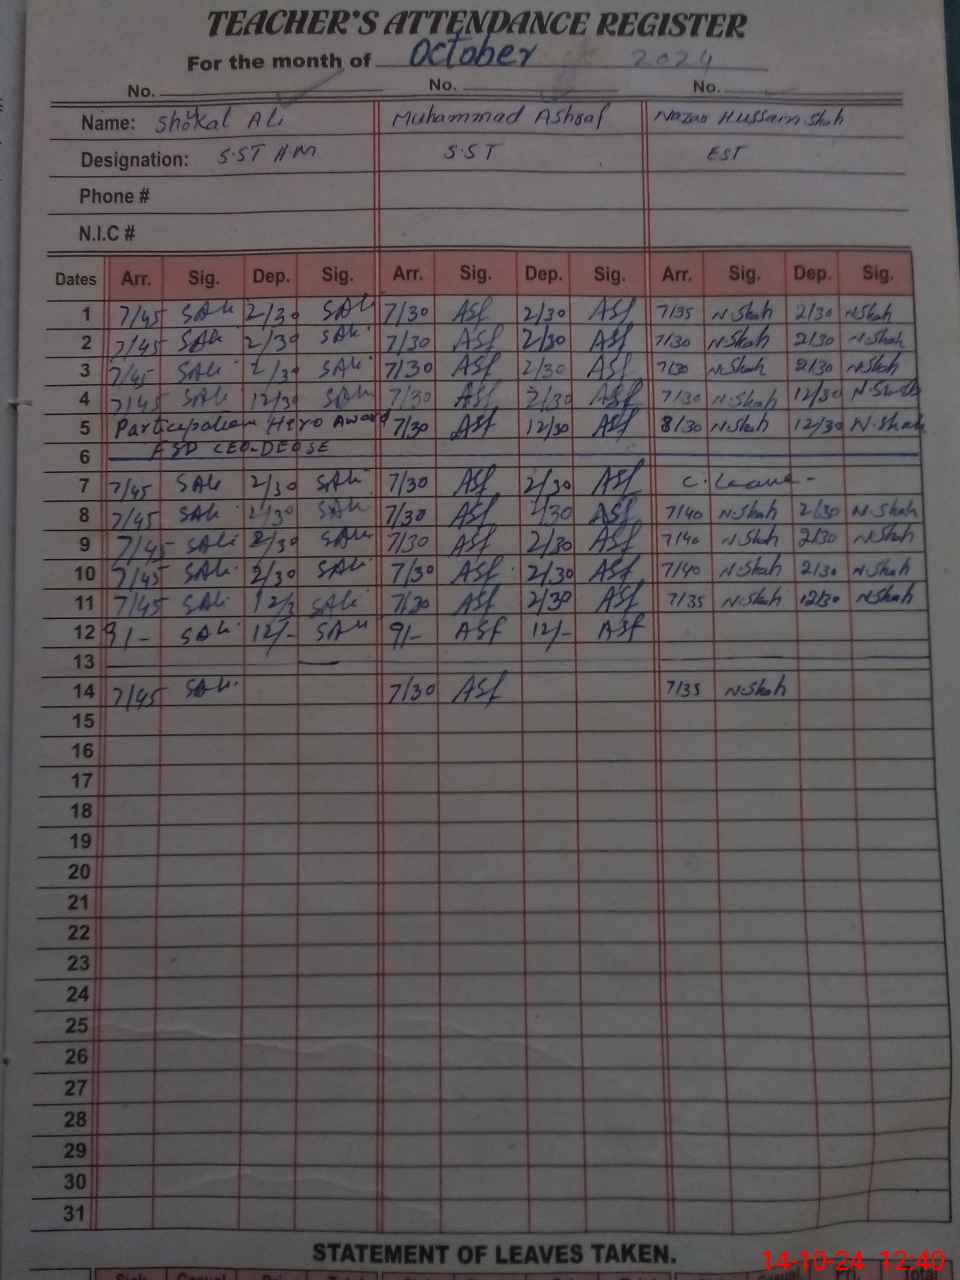 TEACHER'S ATTENDANCE REGISTER
For the month of October 2024
No. No. No.
Name: Shokal Ali Muhammad Ashraf Nazar Hussain Shah
Designation: S.ST H.M S.S T EST
Phone #
N.I.C #
Dates Arr. Sig. Dep. Sig. Arr. Sig. Dep. Sig. Arr. Sig. Dep. Sig.
1 7/45 SAli 2/30 SAli 7/30 ASf 2/30 ASf 7/35 N.Shah 2/30 N.Shah
2 7/45 SAli 2/30 SAli 7/30 ASf 2/30 ASf 7/30 N.Shah 2/30 N.Shah
3 7/45 SAli 2/30 SAli 7/30 ASf 2/30 ASf 7/30 N.Shah 2/30 N.Shah
4 7/45 SAli 12/30 SAli 7/30 ASf 2/30 ASf 7/30 N.Shah 12/30 N.Shah
5 Participation Hero Award 7/30 ASf 12/30 ASf 8/30 N.Shah 12/30 N.Shah
6 FSD CEO-DEOSE
7 7/45 SAli 2/30 SAli 7/30 ASf 2/30 ASf C. Leave -
8 7/45 SAli 2/30 SAli 7/30 ASf 2/30 ASf 7/40 N.Shah 2/30 N.Shah
9 7/45 SAli 2/30 SAli 7/30 ASf 2/30 ASf 7/40 N.Shah 2/30 N.Shah
10 7/45 SAli 2/30 SAli 7/30 ASf 2/30 ASf 7/40 N.Shah 2/30 N.Shah
11 7/45 SAli 12/3 SAli 7/30 ASf 2/30 ASf 7/35 N.Shah 12/30 N.Shah
12 9/- SAli 12/- SAli 9/- ASf 12/- ASf
13
14 7/45 SAli 7/30 ASf 7/35 N.Shah
15
16
17
18
19
20
21
22
23
24
25
26
27
28
29
30
31
STATEMENT OF LEAVES TAKEN.
14-10-24 12:40